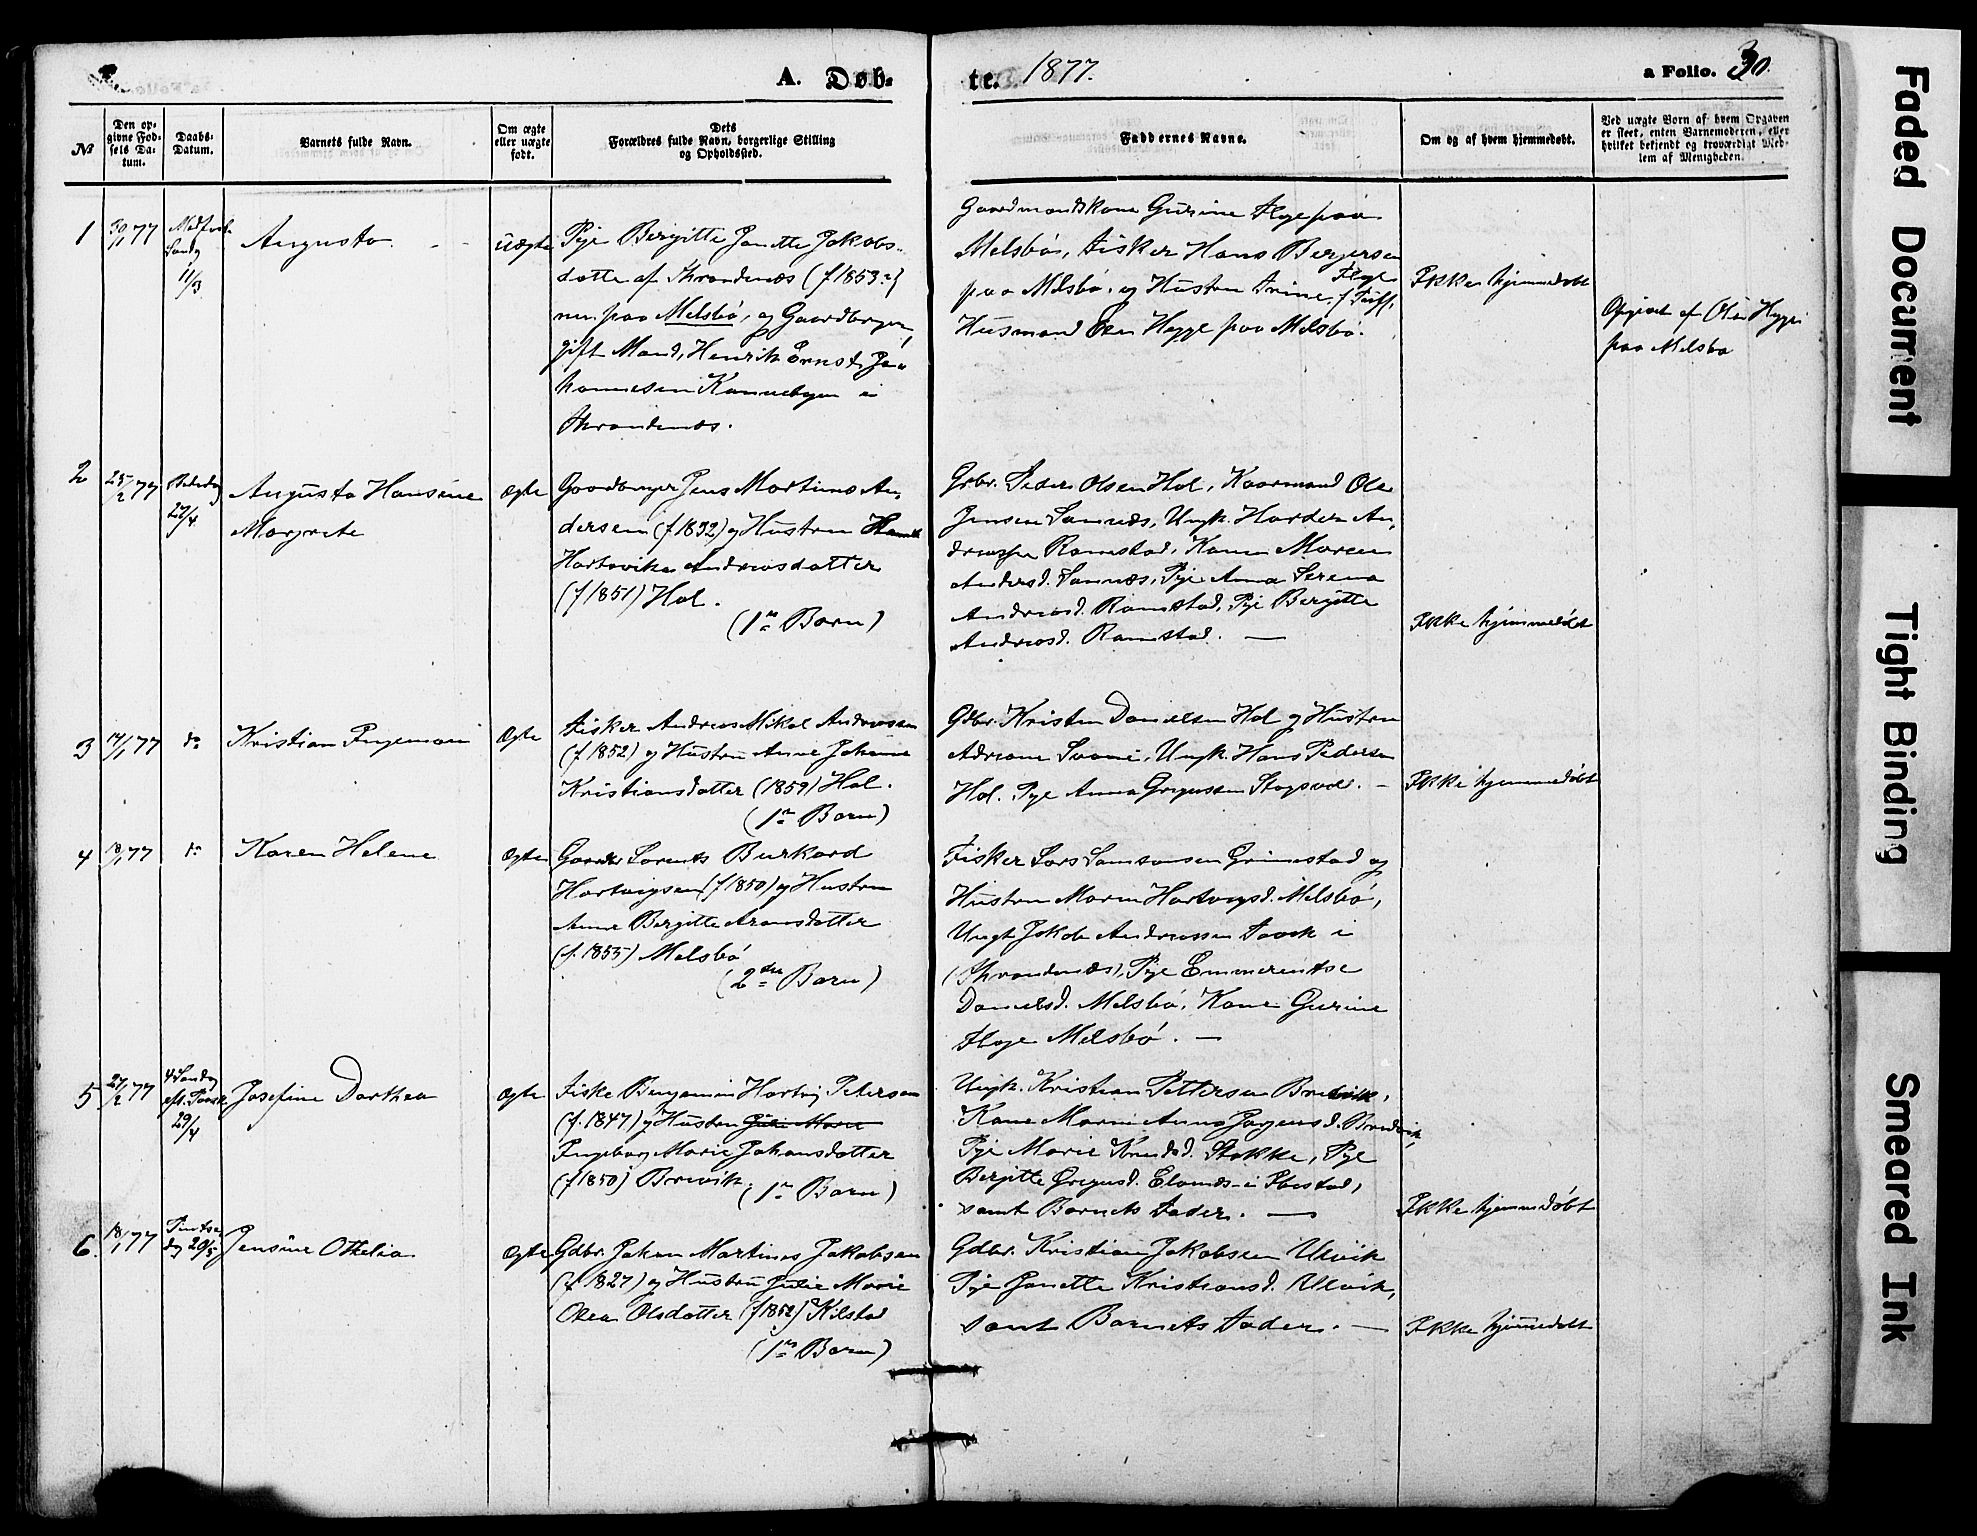 A. Døbte. 1877.
a Folio. 30.
No
Den opgivne Fødsels Datum.
Daabs-Datum.
Barnets fulde Navn.
Om ægte eller uægte født.
Dets Forældres fulde Navn, borgerlige Stilling og Opholdssted.
Faddernes Navne.
Om og af hvem hjemmedøbt.
Ved uægte Børn af hvem Opgaven er skeet, enten Barnemoderen, eller hvilket bekjendt og troværdigt Medlem af Menigheden.
1
30/1 77
11/3
Augusta
Uægte
Pige Bergitte Janette Jakobs-
datter af Throndenæs (f 1853)
nu paa Melsbø, og Gaardbruger,
gift Mand, Henrik Ernst Jo-
hannesen Kannebogen i
Throndenæs.
Gaardmandskone Gurine Floge paa
Melsbø, Fisker Hans Bergersen
paa Melsbø og Hustru Trine
Husmand Ole Hegge paa Melsbø.
Ikke hjemmedøbt
Opgivet af Ole Hegge
paa Melsbø
2
25/2 77
27/4
Augusta Hansine
Margrete
Ægte
Gaardbruger Jens Martinus An-
dersen (f 1832) og Hustru
Hartvika Andreasdatter
(f 1851) Hol.
(1ste Barn)
Grbr. Peder Olsen Hol, Kaarmand Ole
Jensen Sannæs, Ungk. Andreassen Ramstad, Kone Maren
Andersd. Sannæs, Pige Anna Serena
Andreasd. Ramstad, Pige Bergitte
Andreasd. Ramstad. —
Ikke hjemmedøbt
3
77
do
Kristian Ingeman
Ægte
Fisker Andreas Mikal Andreassen
(f. 1852) og Hustru Anne Johanna
Kristiansdatter (1859) Hol.
(1ste Barn)
Gdbr. Kristen Danielsen Hol og Hustru
Adriane, Ungk. Hans Pedersen
Hol. Pige Anna Gregussen. —
Ikke hjemmedøbt
4
18/1 77
do
Karen Helene
Ægte
Gaardbr Lorents Burkard
Hartvigsen (f 1850) og Hustru
Anne Bergitte Aronsdatter
(f. 1855) Melsbø
(2det Barn)
Fisker Lars Samsonsen Grimestad og
Hustru Maren Hartvigsd. Melsbø,
Ungk Jakob Andreassen i
(Throndenæs), Pige Emmerentse
Danielsd. Melsbø, Kone Gurine
Floge Melsbø. —
5
27/2 77
4 Søndag
eft. Paaske
29/4
Josefine Dorthea
Ægte
Fisker Benjamin Hartvig Petersen
(f. 1847) og Hustru Julie Marie
Ingeborg Marie Johansdatter
(f 1850) Brevik.
(1ste Barn)
Ungk. Kristian Pettersen Bredvik,
Kone Marie Anna Jørgensd. Bredvik,
Pige Marie Knudsd. Stokke, Pige
Bergitte Gregusd. Elvenes i Ibestad,
samt Barnets Fader. —
Ikke hjemmedøbt
6.
18/1 77
Pintse-
dag 20/5
Jensine Othelia
Ægte
Gdbr. Johan Martinus Jakobsen
(f 1827) og Hustru Julie Marie
Olea Olsdatter (f 1852) Kilstad
(1ste Barn)
Gdbr. Kristian Jakobsen Ulvik
Pige Janette Kristiansd. Ulvik,
samt Barnets Fader. —
Ikke hjemmedøbt
Faded Document
Tight Binding
Smeared Ink